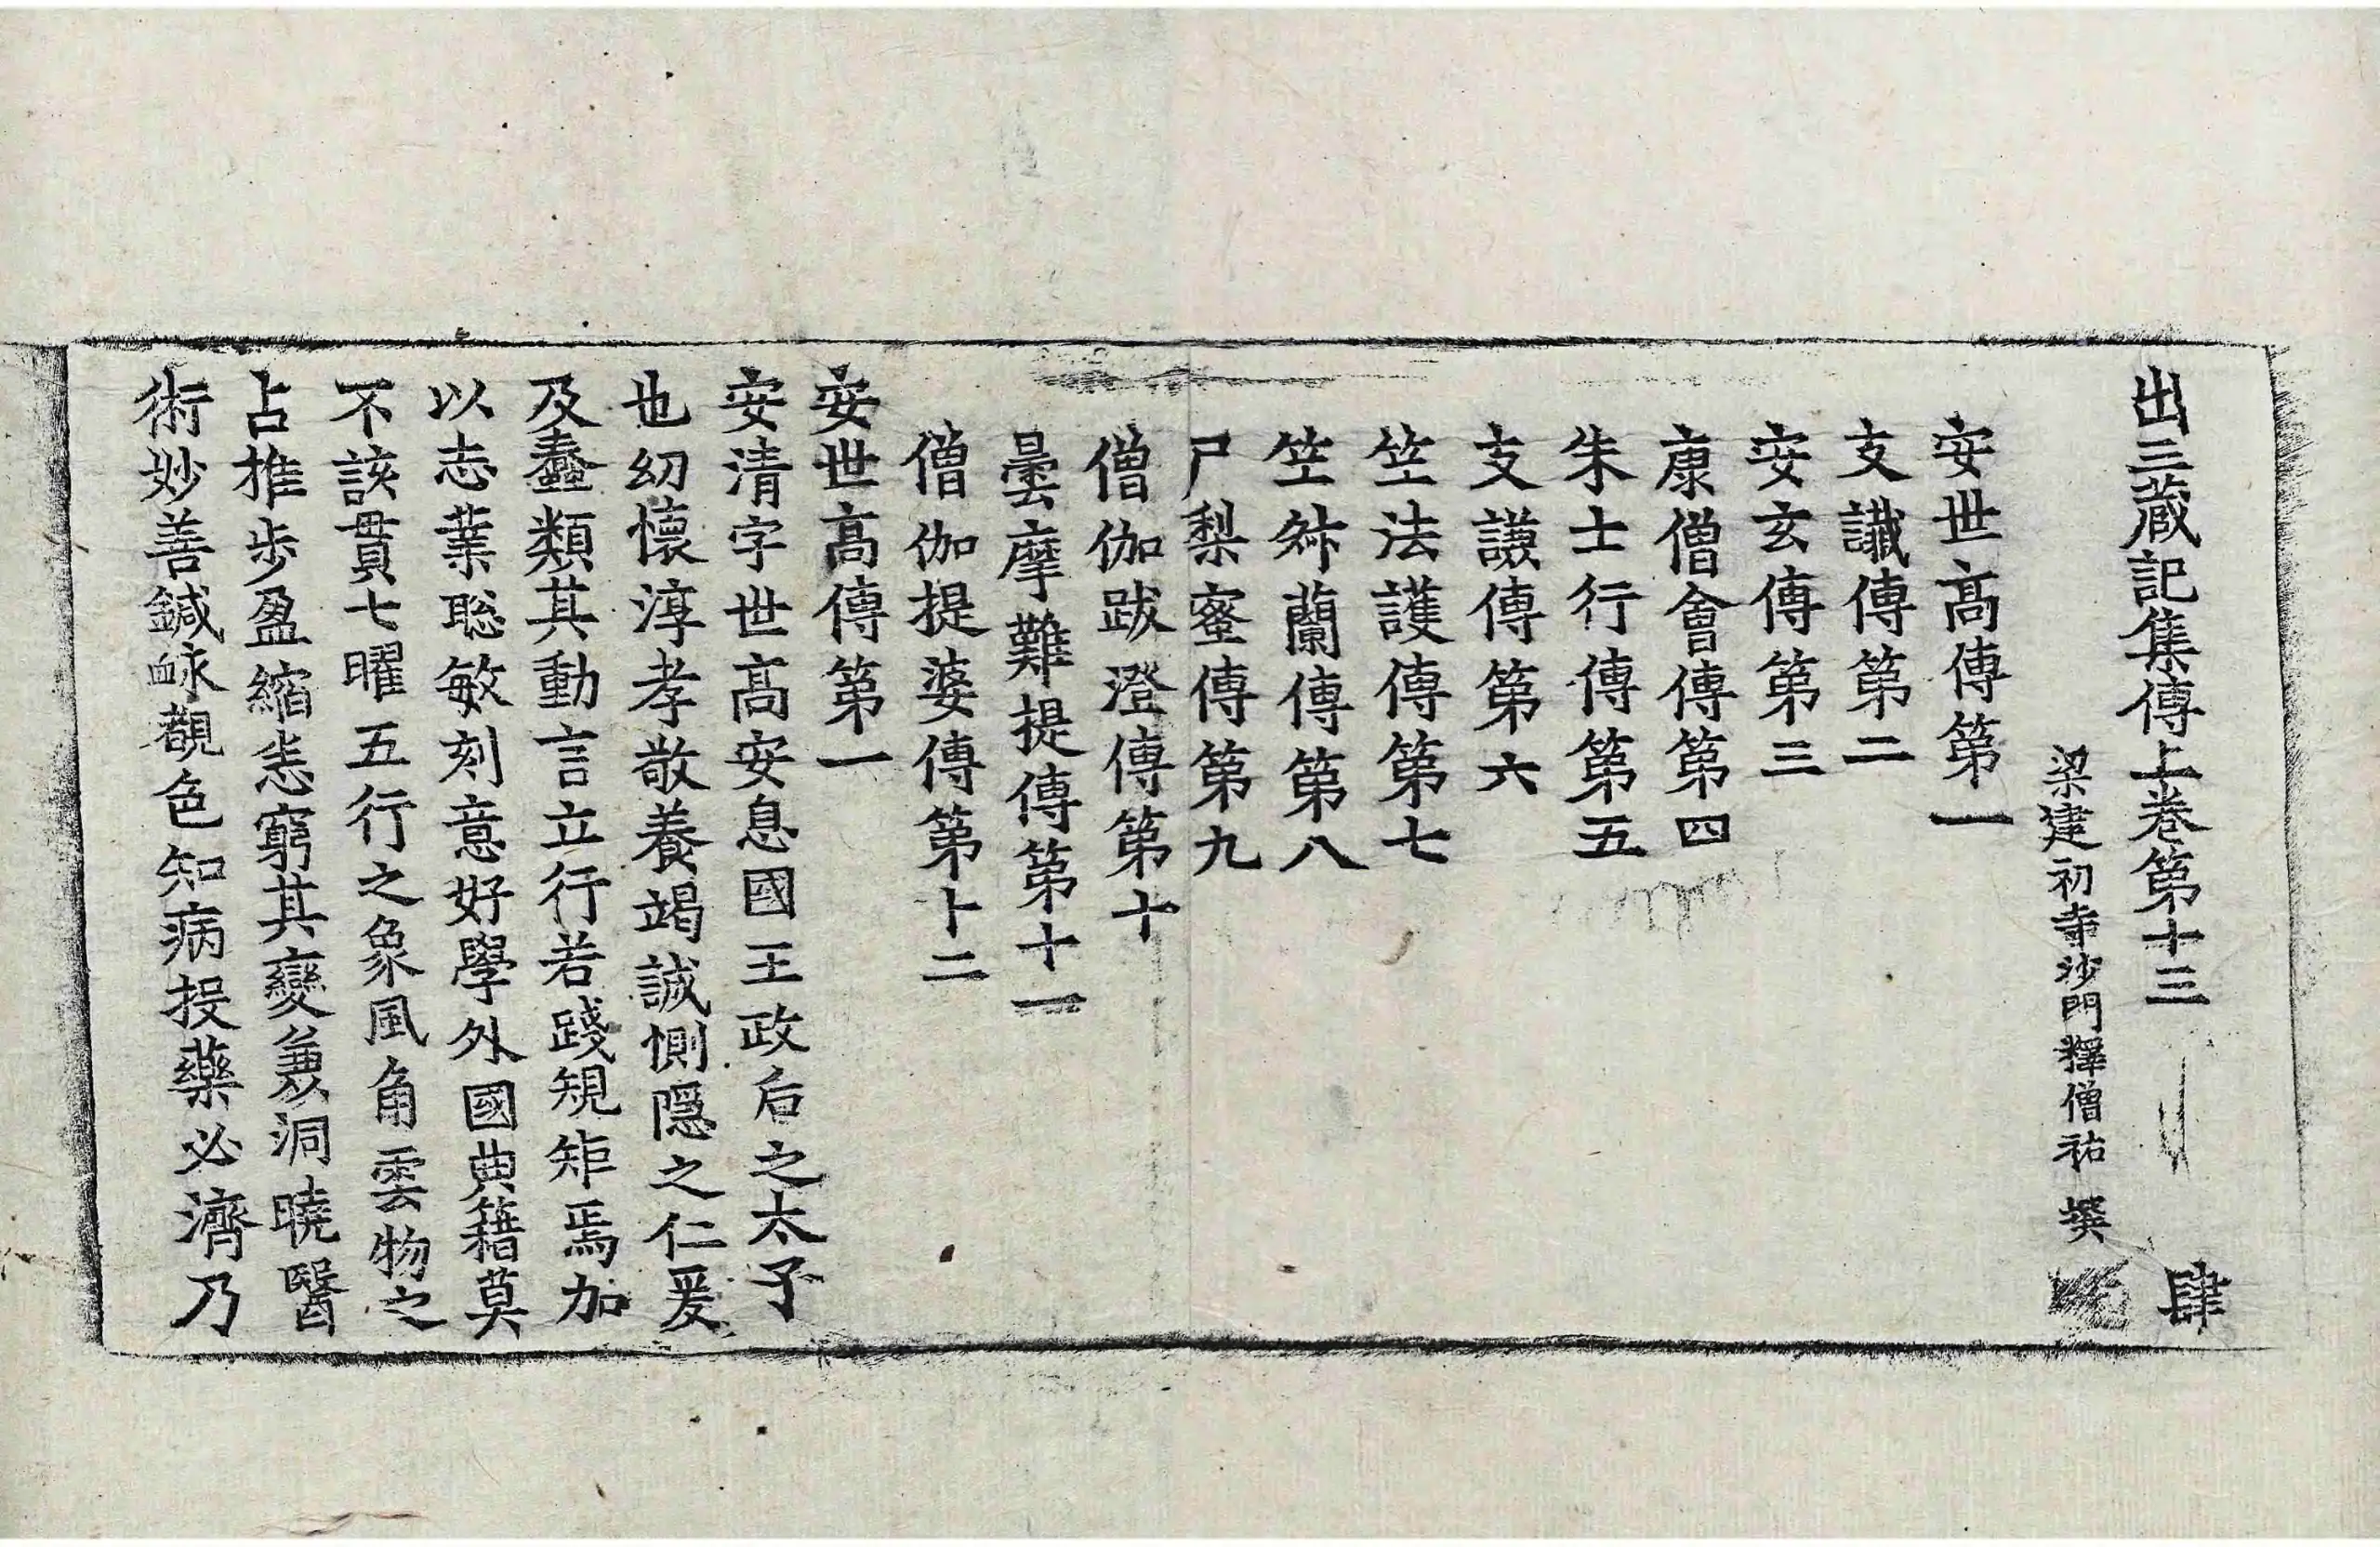 出三蔵記集傳上卷第十三 肆
梁建初寺沙門釋僧祐 撰
安世髙傳第一
支讖傳第二
安玄傳第三
康僧會傳第四
朱士行傳第五
支謙傳第六
竺法護傳第七
竺叔蘭傳第八
尸梨蜜傳第九
僧伽跋澄傳第十
曇摩難提傳第十一
僧伽提婆傳第十二
安世髙傳第一
安清字世髙安息國王政后之太子
也幼懷淳孝敬養竭誠惻隱之仁爰
及蠢類其動言立行若踐規矩焉加
以志業聡敏刻意好學外國典籍莫
不該貫七曜五行之象風角雲物之
占推步盈縮悉窮其變兼洞曉醫
術妙善鍼𧖴觀色知病投藥必濟乃